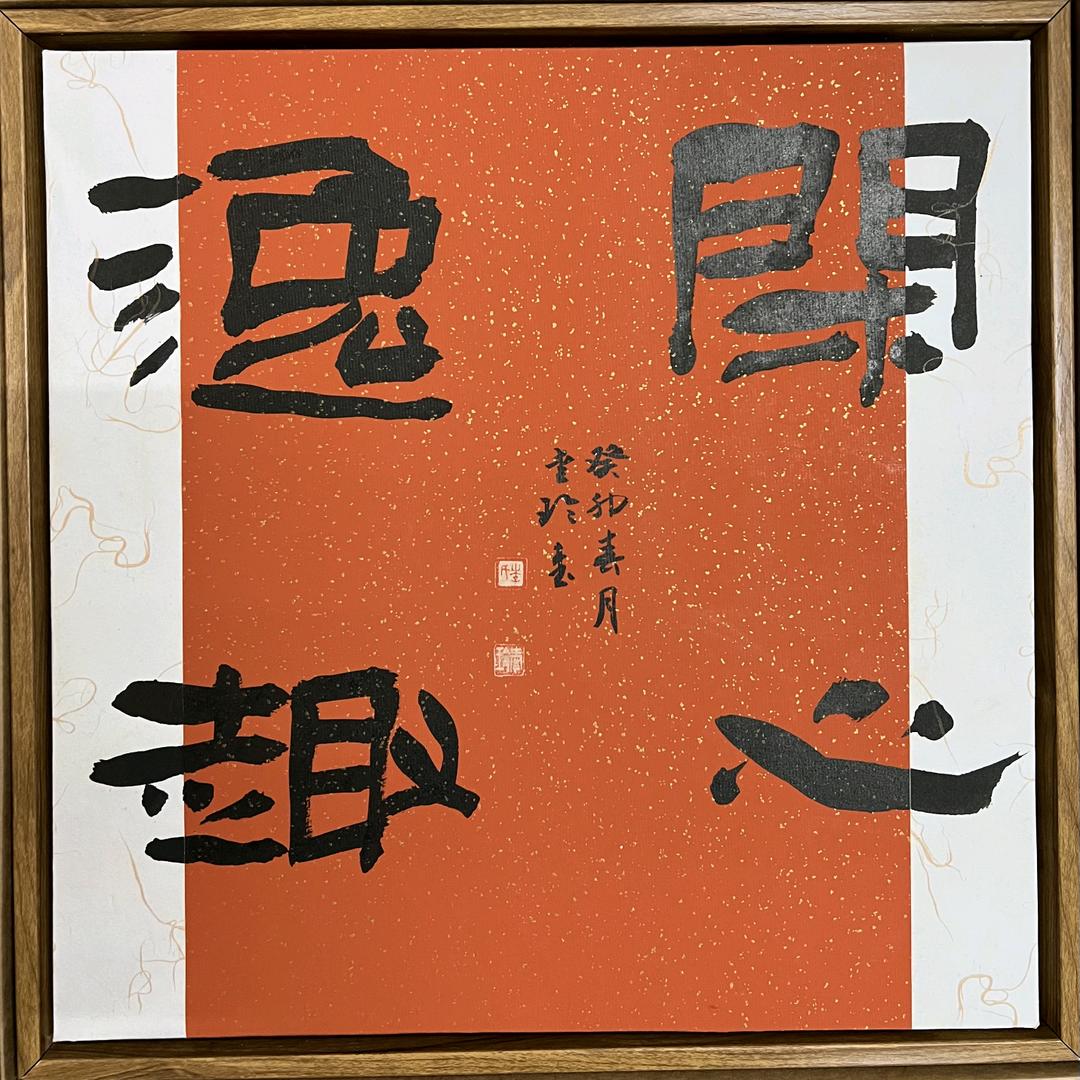 閑心
逸趣
癸卯春月
玲書